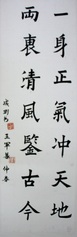 一身正氣冲天地
兩袖清風鑒古今